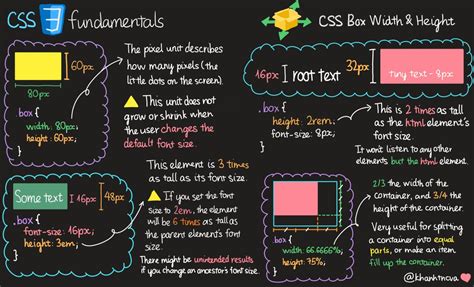 CSS 3 fundamentals
60px
80px
.box {
width: 80px;
height: 60px;
}
The pixel unit describes
how many pixels (the
little dots on the screen).
This unit does not
grow or shrink when
the user changes the
default font size.
Some text
16px
48px
.box {
font-size: 16px;
height: 3em;
}
This element is 3 times
as tall as its font size.
If you set the font
size to 2em, the element
will be 6 times as tall as
the parent element's font
size.
There might be unintended results
if you change an ancestor's font size.
CSS Box Width & Height
16px I root text
32px
tiny text - 8px
.box {
height: 2rem;
font-size: 8px;
}
This is 2 times as tall
as the html element's
font size.
It won't listen to any other
elements but the html element.
.box {
width: 66.6666%;
height: 75%;
}
2/3 the width of the
container, and 3/4 the
height of the container.
Very useful for splitting
a container into equal
parts, or make an item
fill up the container.
@khanhtncva